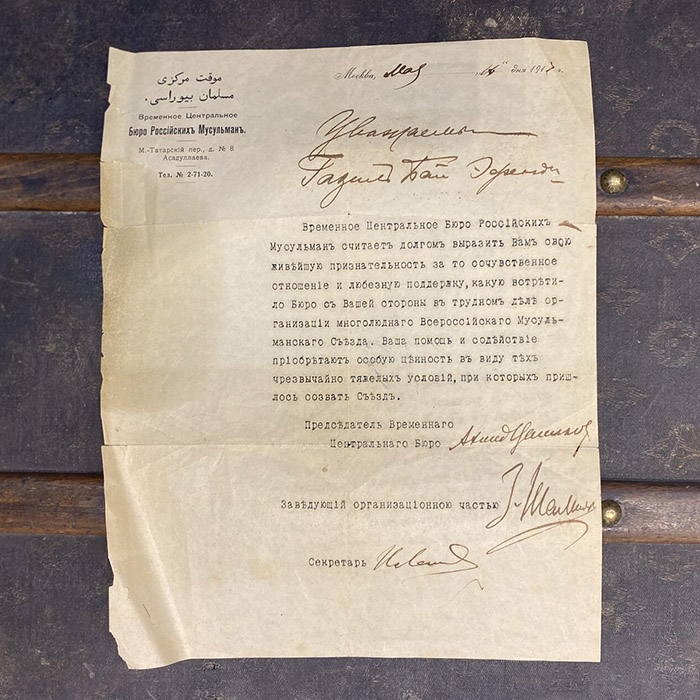 موقت مركزى
مسلمان بيوراسى.
Временное Центральное
Бюро Россiйскихъ Мусульманъ.
М.-Татарскiй пер., д. № 8
Асадуллаева.
Тел. № 2-71-20.
Москва, Мая „ “ дня 1917 г.
Уважаемый
Бай Эфенди
Временное Центральное Бюро Россiйскихъ
Мусульманъ считаетъ долгомъ выразить Вамъ свою
живѣйшую признательность за то сочувственное
отношенiе и любезную поддержку, какую встрѣти-
ло Бюро съ Вашей стороны въ трудномъ дѣлѣ ор-
ганизацiи многолюднаго Всероссiйскаго Мусуль-
манскаго Съѣзда. Ваша помощь и содѣйствiе
прiобрѣтаютъ особую цѣнность въ виду тѣхъ
чрезвычайно тяжелыхъ условiй, при которыхъ приш-
лось созвать Съѣздъ.
Предсѣдатель Временнаго
Центральнаго Бюро Ахмед Цаликов
Завѣдующiй организацiонною частью
Секретарь